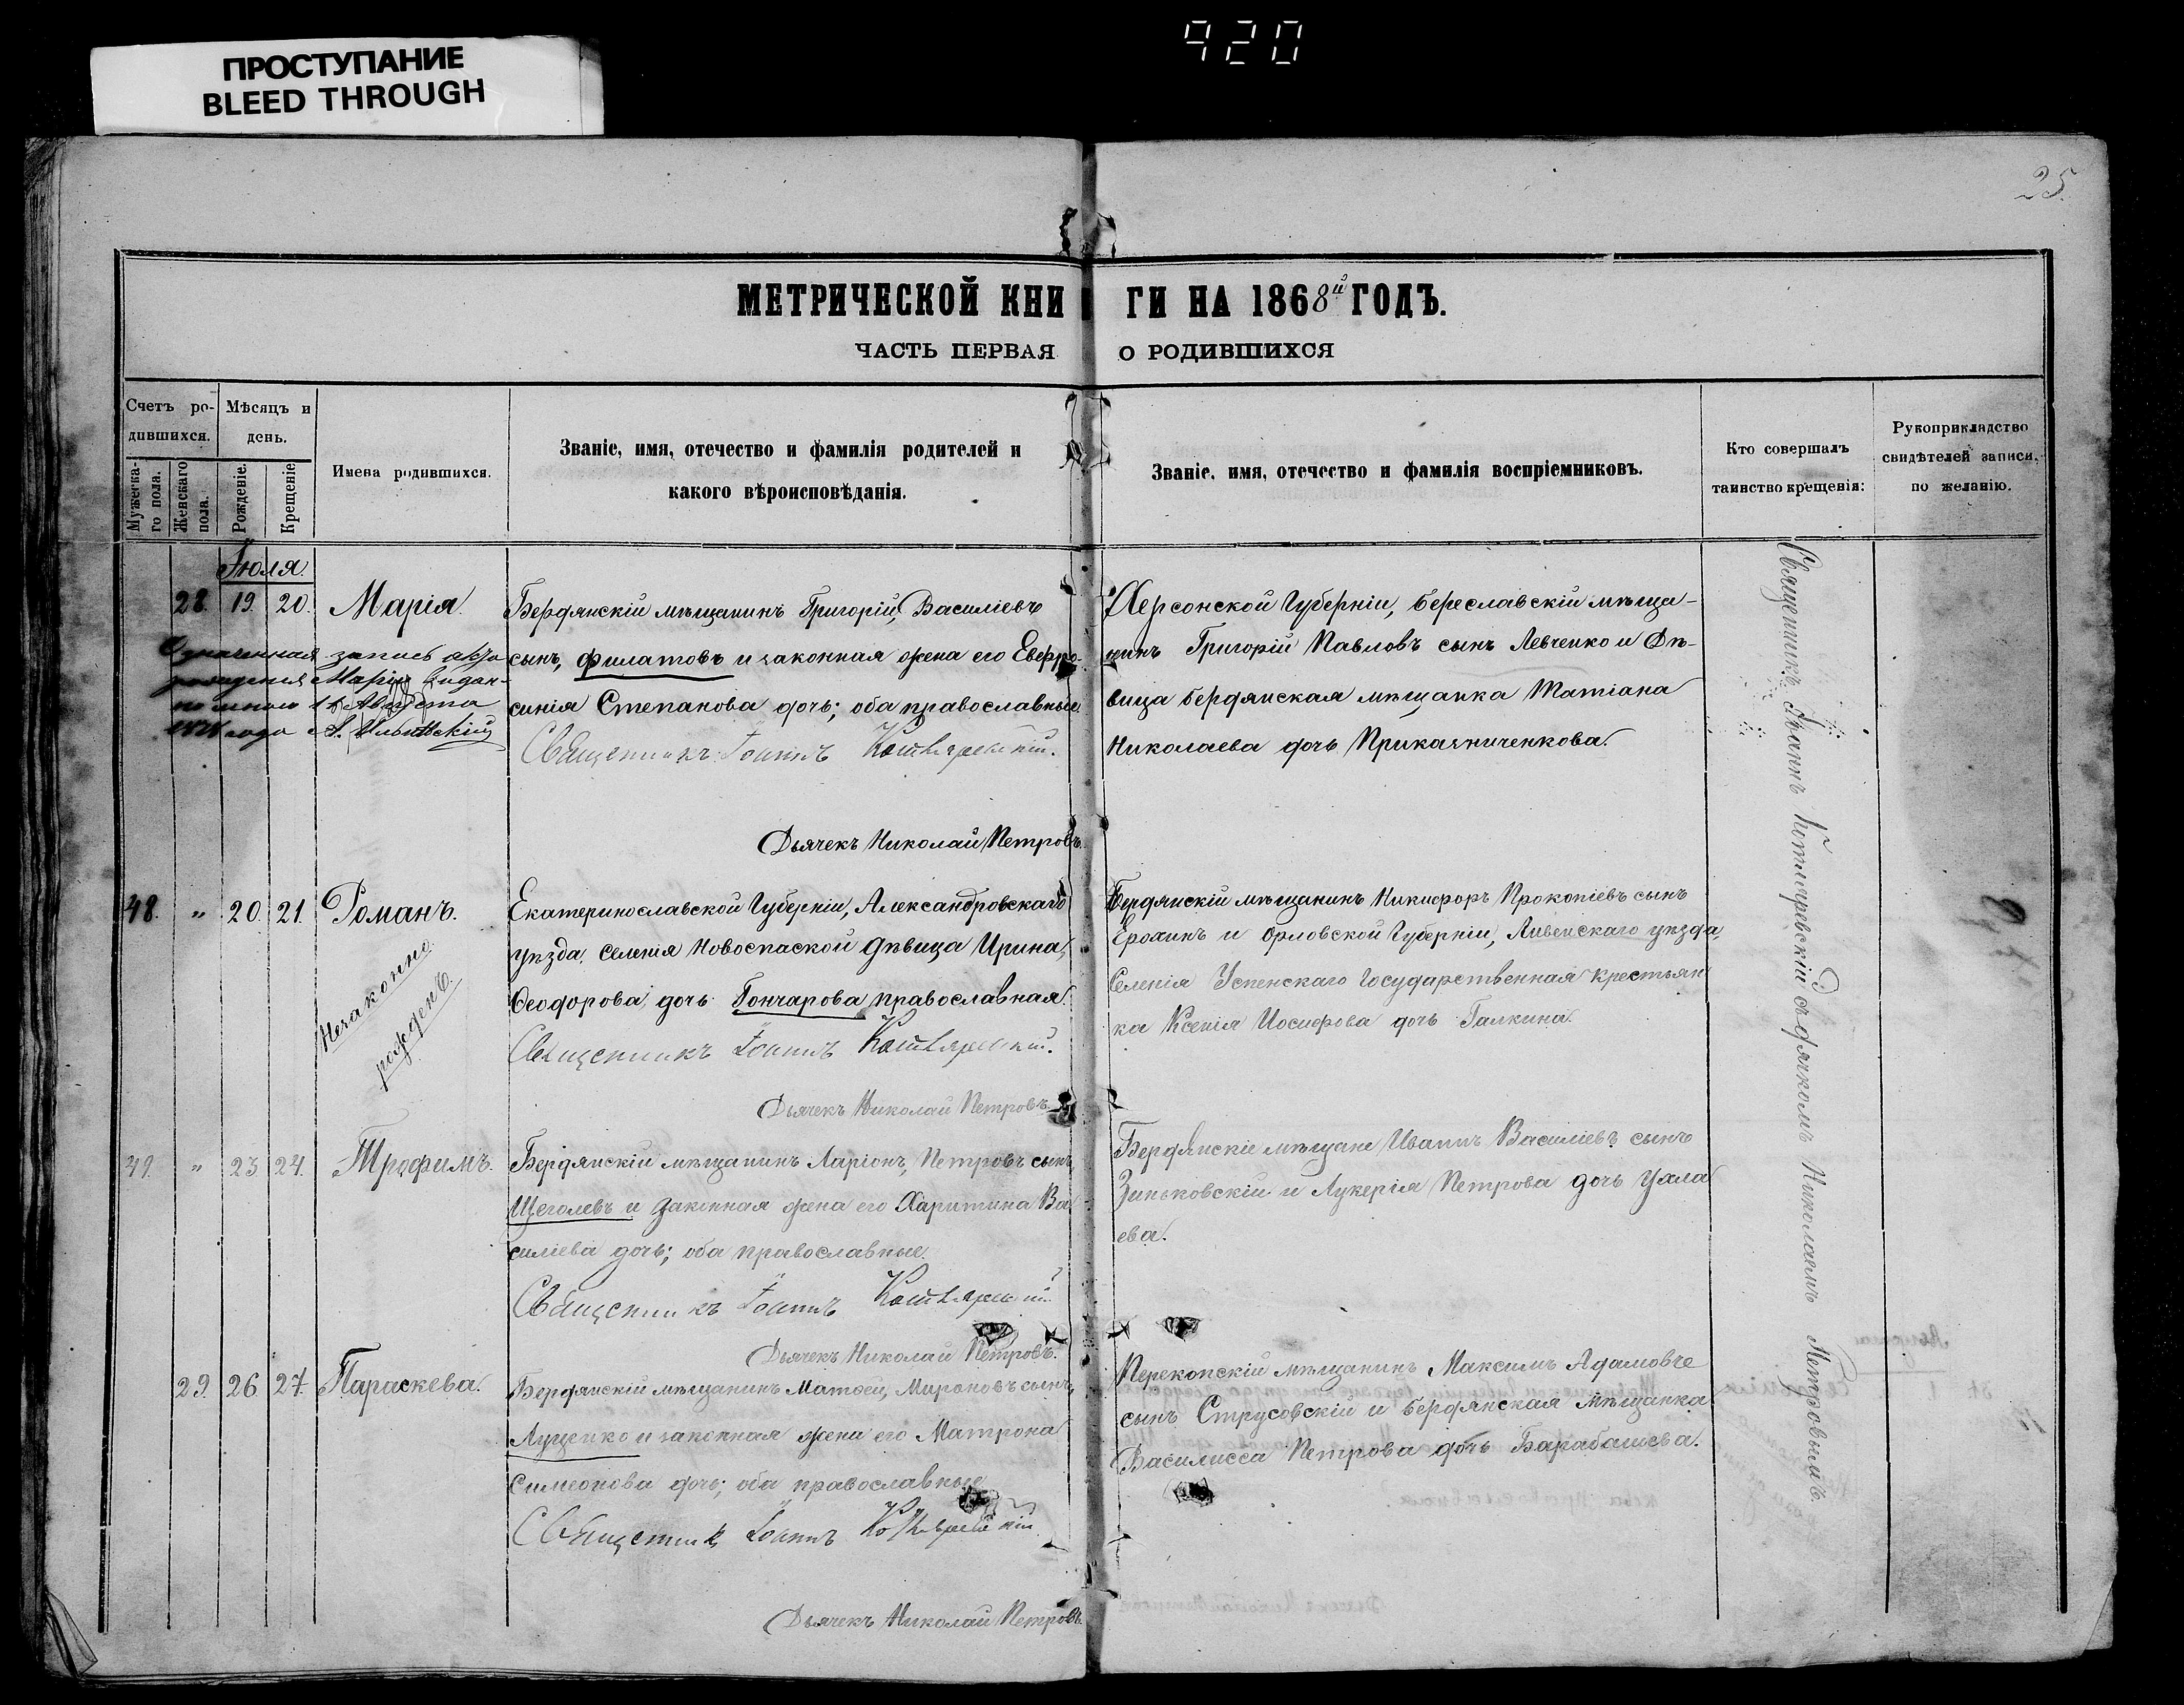 920
ПРОСТУПАНИЕ
BLEED THROUGH
25.
МЕТРИЧЕСКОЙ КНИ ГИ НА 1868й ГОДЪ.
ЧАСТЬ ПЕРВАЯ О РОДИВШИХСЯ
Счетъ ро-
дившихся.
Мужеска-
го пола.
Женскаго
пола.
Мѣсяцъ и
день.
Рожденіе.
Крещеніе.
Имена родившихся.
Званіе, имя, отечество и фамилія родителей и
какого вѣроисповѣданія.
Званіе, имя, отечество и фамилія воспріемниковъ.
Кто совершалъ
таинство крещенія:
Рукоприкладство
свидѣтелей записи,
по желанію.
Іюля.
28. 19. 20. Марія.
Означенная запись
Маріи видан-
но мною 11 Августа
года
Бердянскій мѣщанинъ Григорій, Василіевъ
сынъ, Филатовъ и законная жена его Евфро-
синія Степанова дочь; оба православные
Священникъ Іоаннъ Котляревскій.
Дьячекъ Николай Петровъ.
Херсонской Губерніи, бериславскій мѣща-
нинъ Григорій Павловъ сынъ Левченко и Дѣ-
вица бердянская мѣщанка Татіана
Николаева дочь Приказниченкова.
48. „ 20. 21. Романъ.
Незаконно
рожденъ.
Екатеринославской Губерніи, Александровскаго
уѣзда, селенія Новоспаской дѣвица Ирина,
Ѳеодорова дочь Гончарова православная.
Священникъ Іоаннъ Котляревскій.
Дьячекъ Николай Петровъ.
Бердянскій мѣщанинъ Никифоръ Прокопіевъ сынъ
Ерохинъ и Орловской Губерніи, Ливенскаго уѣзда,
Селенія Успенскаго Государственная крестьян
ка Ксенія Іосифова дочь Галкина.
49. „ 23. 24. Трофимъ.
Бердянскій мѣщанинъ Ларіонъ, Петровъ сынъ,
Щеголевъ и законная жена его Харитина Ва
силіева дочь; оба православные.
Священникъ Іоаннъ Котляревскій.
Дьячекъ Николай Петровъ.
Бердянскіе мѣщане Иванъ Василіевъ сынъ
Зиньковскій и Лукерія Петрова дочь Ухала
ева.
29. 26. 27. Параскева.
Бердянскій мѣщанинъ Матѳей, Мироновъ сынъ,
Луценко и законная жена его Матрона
Симеонова дочь; оба православные
Священникъ Іоаннъ Котляревскій
Дьячекъ Николай Петровъ.
Перекопскій мѣщанинъ Максимъ Адамовъ
сынъ Струсовскій и бердянская мѣщанка
Василисса Петрова дочь Барабашева.
Священникъ Іоаннъ Котляревскій съ дячкомъ Николаемъ Петровымъ.